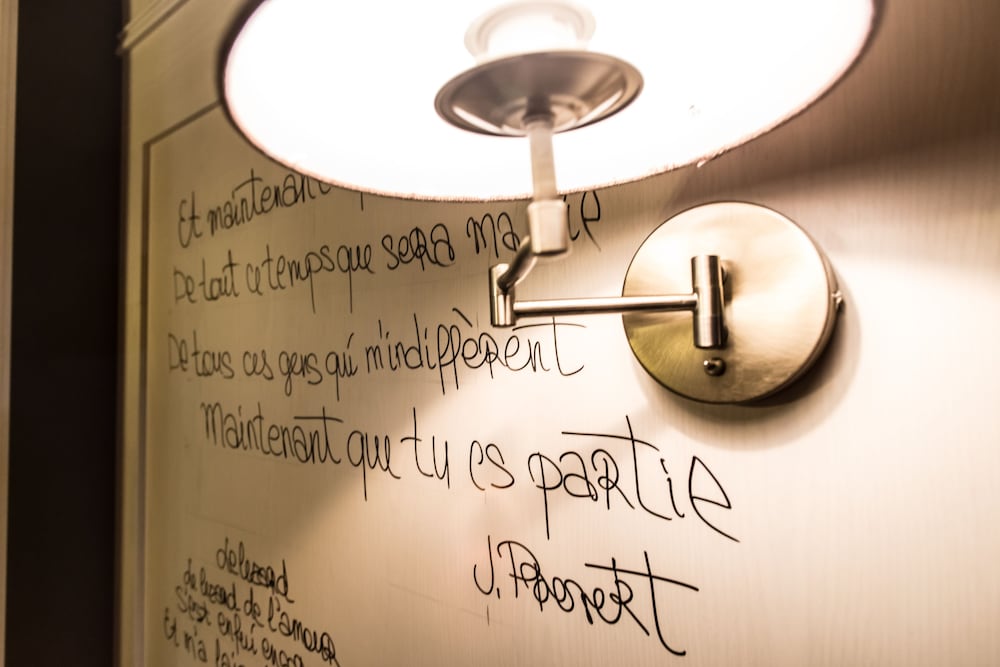 Et maintenant
De tout ce temps que sera ma
De tous ces gens qui m'indiffèrent
Maintenant que tu es partie
J.
Le lezard
Le lezard de l'amour
S'est enfui
Et m'a